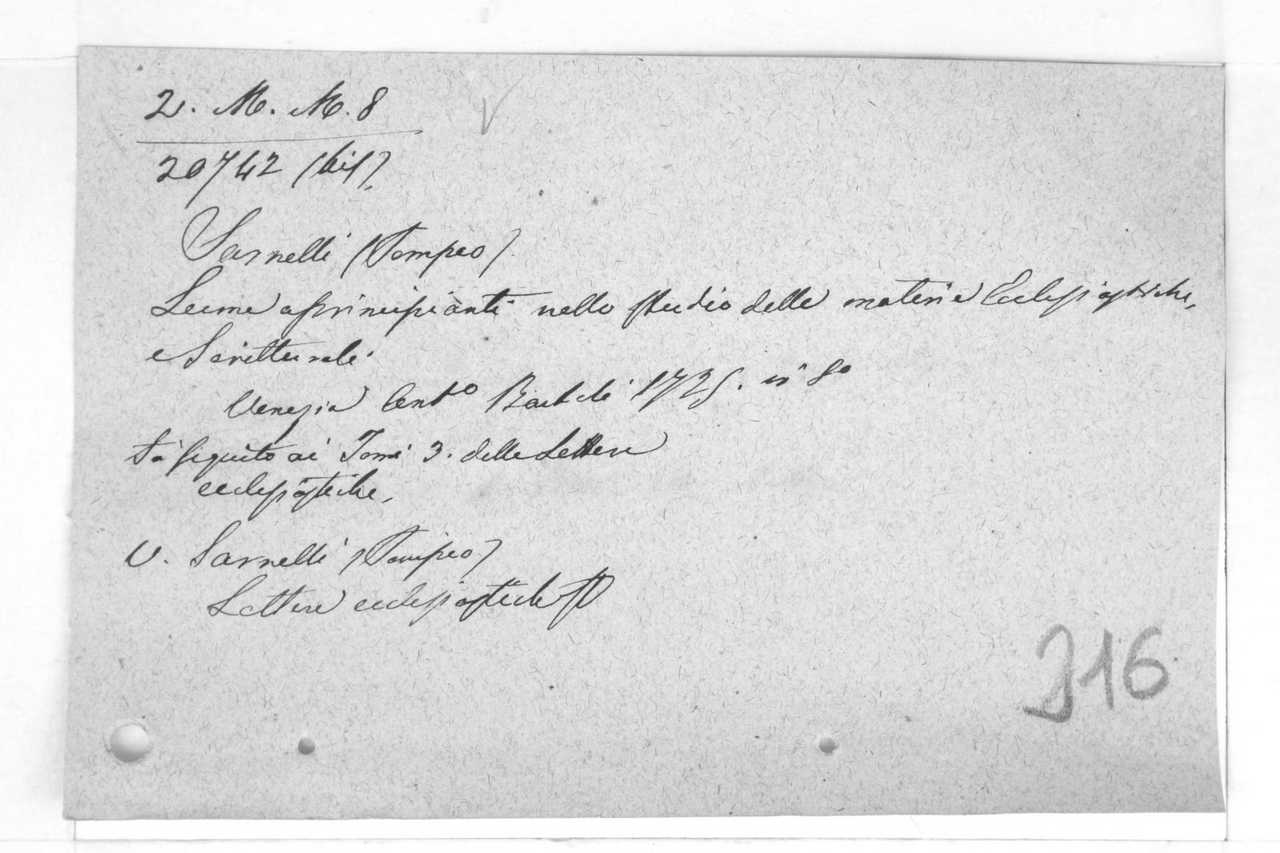 2. M. M. 8
20742 (bis).
Sarnelli (Pompeo).
Lume a principianti nello studio delle materie Ecclesiastiche,
e Scritturali.
Venezia Ant.o Bortoli 1725. in 8°
Fà seguito ai Tomi 3. delle Lettere
ecclesiastiche.
V. Sarnelli (Pompeo)
Lettere ecclesiastiche
316